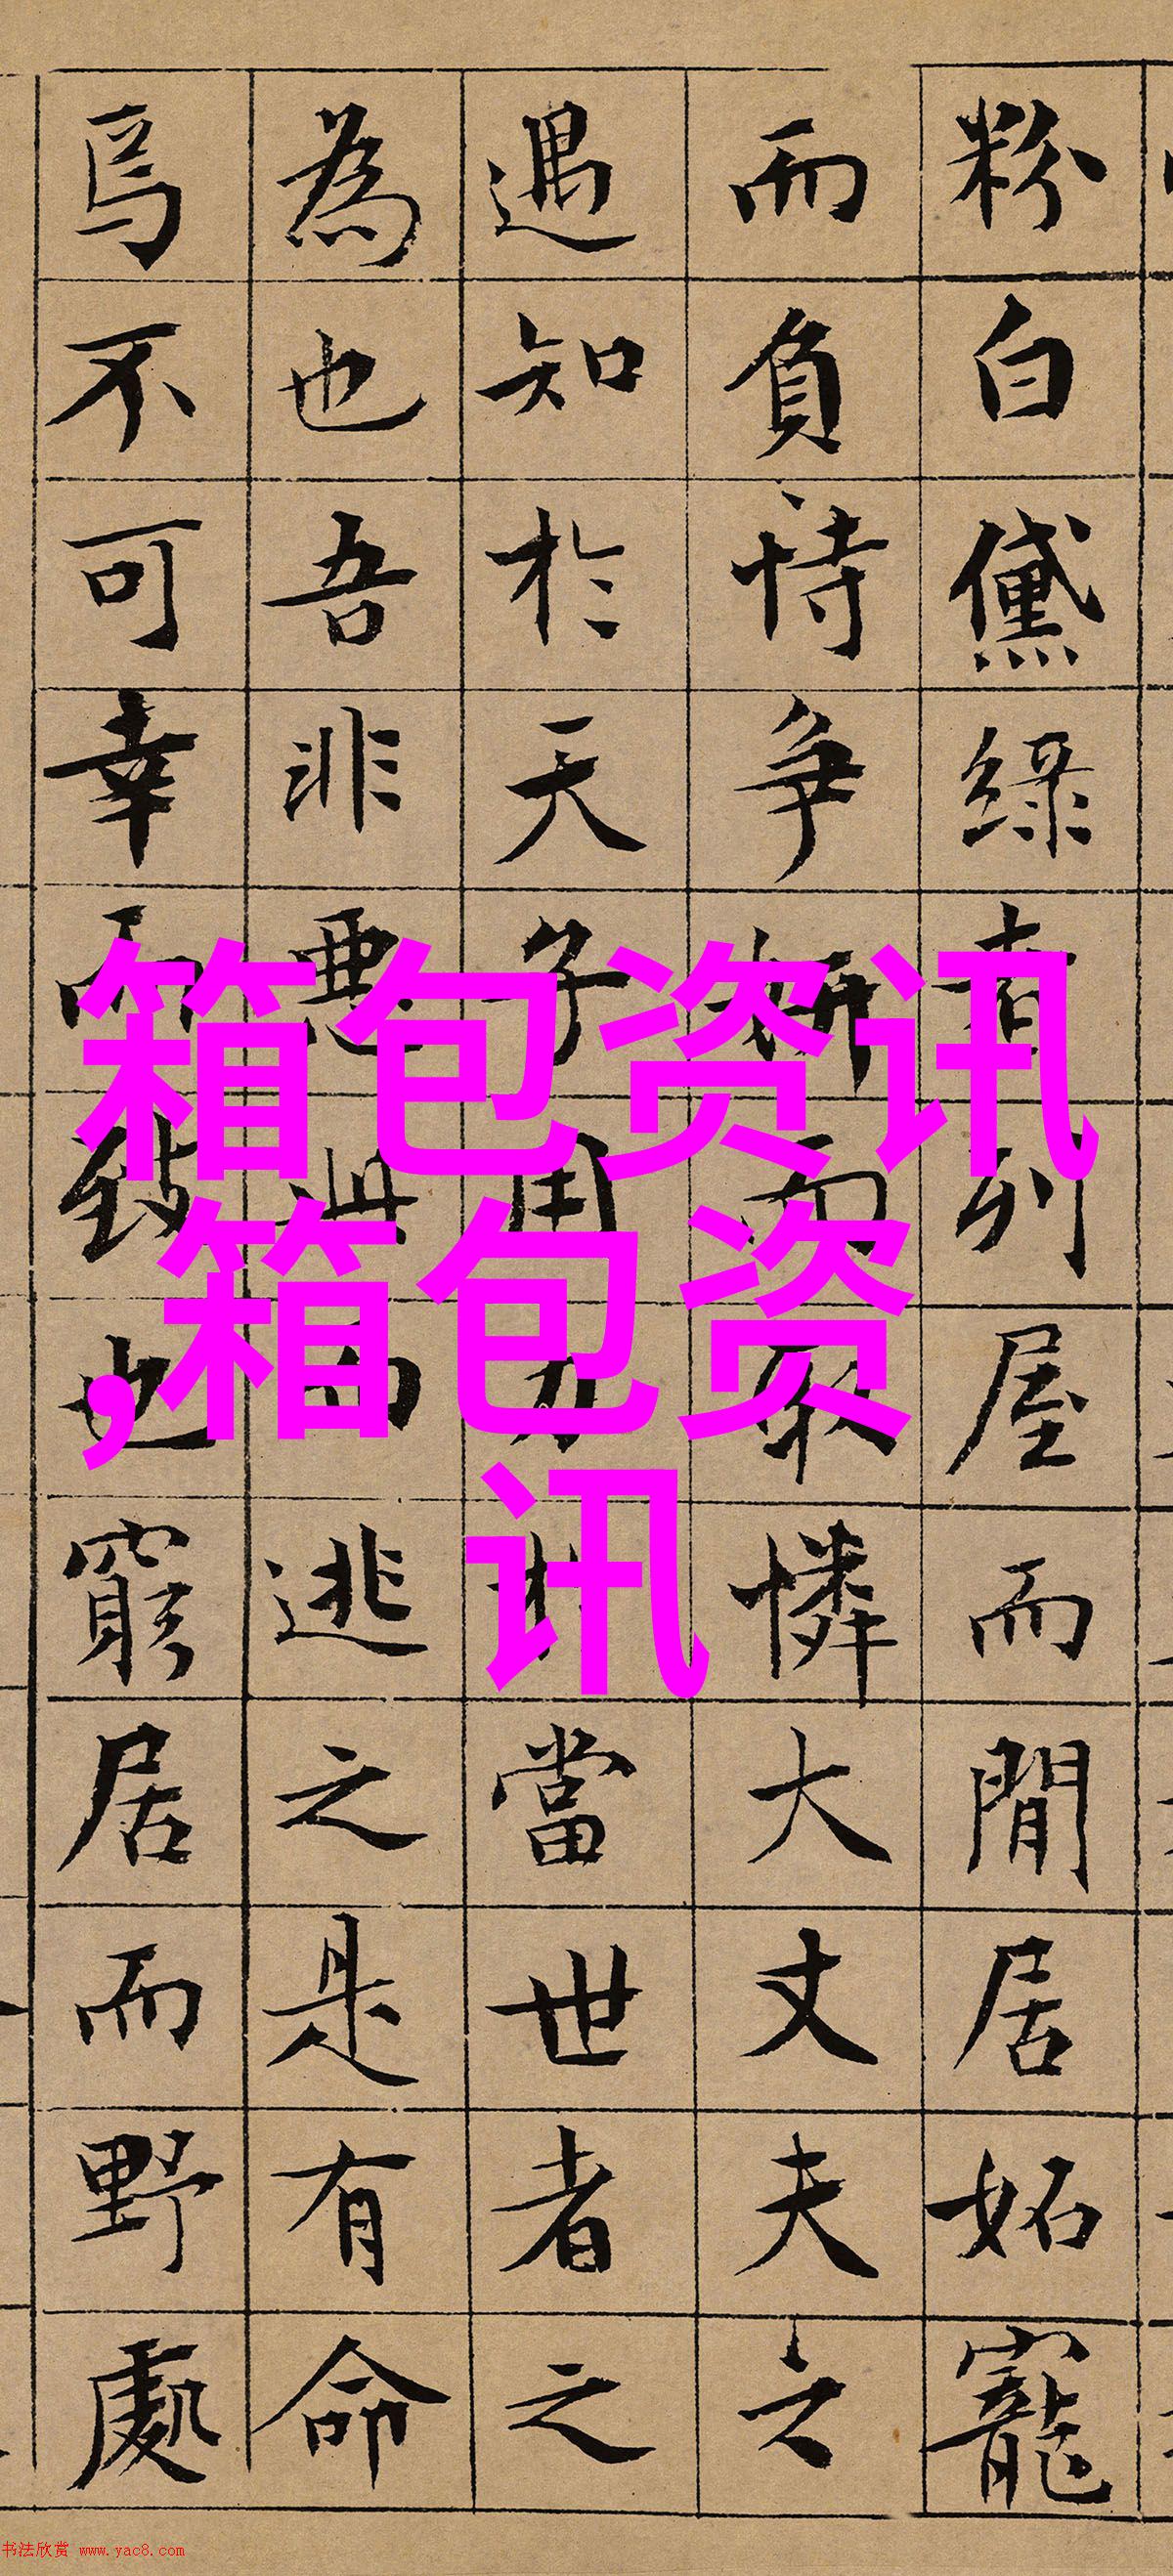 粉白黛綠者列屋而閒居妬寵
而負恃争妍而取憐大丈夫之
遇知於天子用力於當世者之
為也吾非惡此而逃之是有命
焉不可幸而致也窮居而野處
箱包资讯
,箱包资
讯
书法欣赏 www.yac8.com